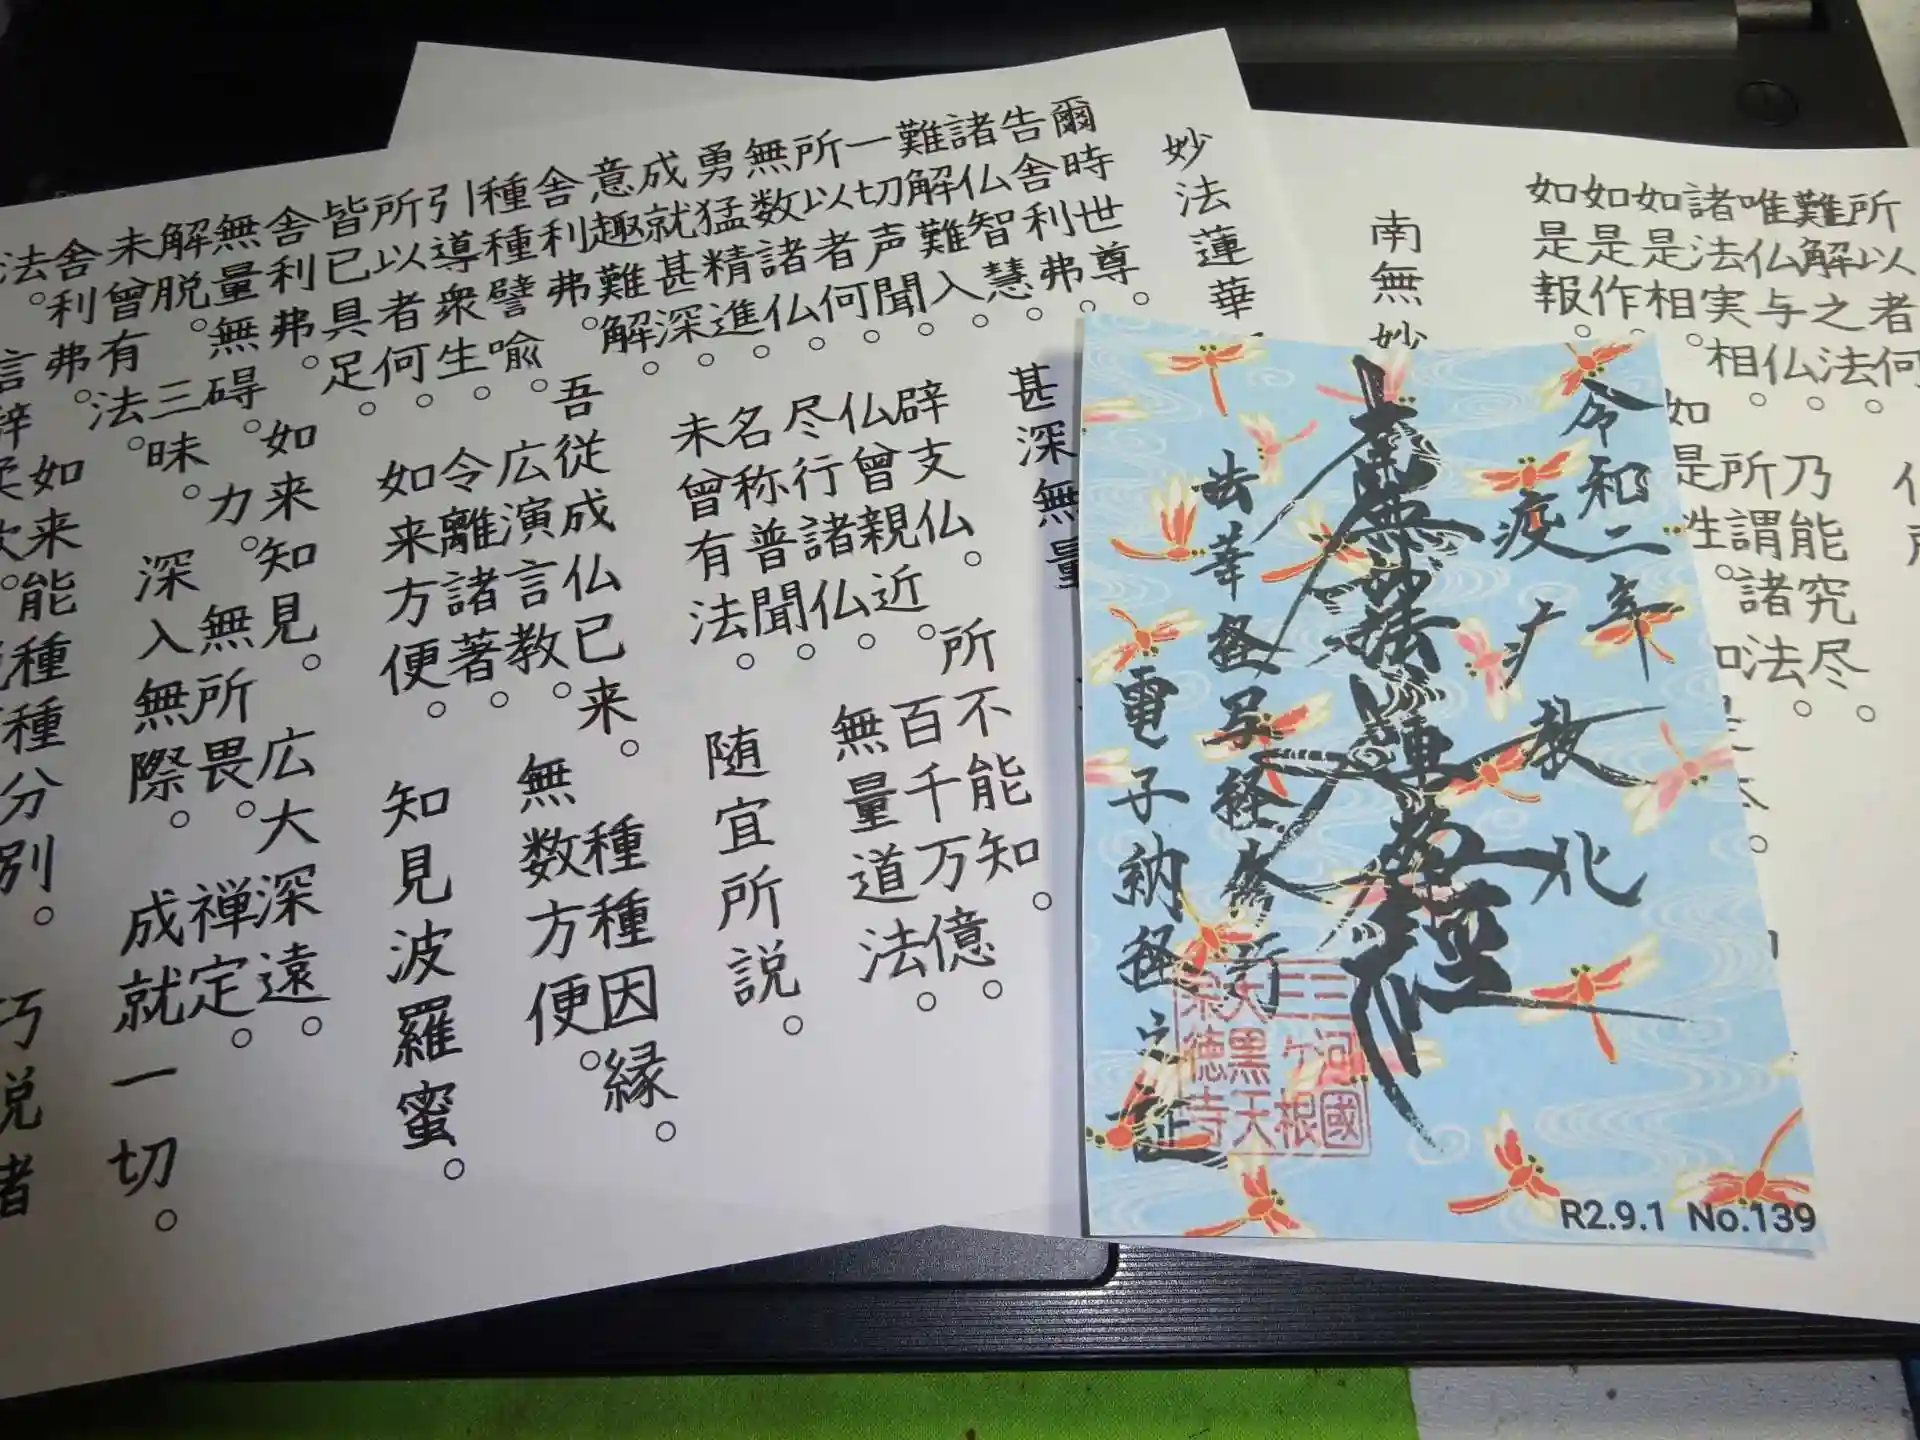 所以者何
難解之法。
唯仏与仏。乃能究尽。
諸法実相。所謂諸法。
如是相。如是性。
如是作。
如是報。
南無妙
令和二年
疫
広
教
化
南無妙法蓮華経
法華経写経久修行
電子納経之証
三河國
三ヶ根
大黒天
宗徳寺
R2.9.1 No.139
妙法蓮華
爾時世尊。
告舎利弗。
諸仏智慧。甚深無量
難解難入。
一切声聞。辟支仏。所不能知。
所以者何。仏曾親近。百千万億。
無数諸仏。尽行諸仏。無量道法。
勇猛精進。名称普聞。
成就甚深。未曾有法。随宜所説。
意趣難解。
舎利弗。吾従成仏已来。種種因縁。
種種譬喩。広演言教。無数方便。
引導衆生。令離諸著。
所以者何。如来方便。知見波羅蜜。
皆已具足。
舎利弗。如来知見。広大深遠。
無量無碍。力。無所畏。禅定。
解脱。三昧。深入無際。成就一切。
未曾有法。
舎利弗。如来能種種分別。巧説者
法。言辞柔軟。